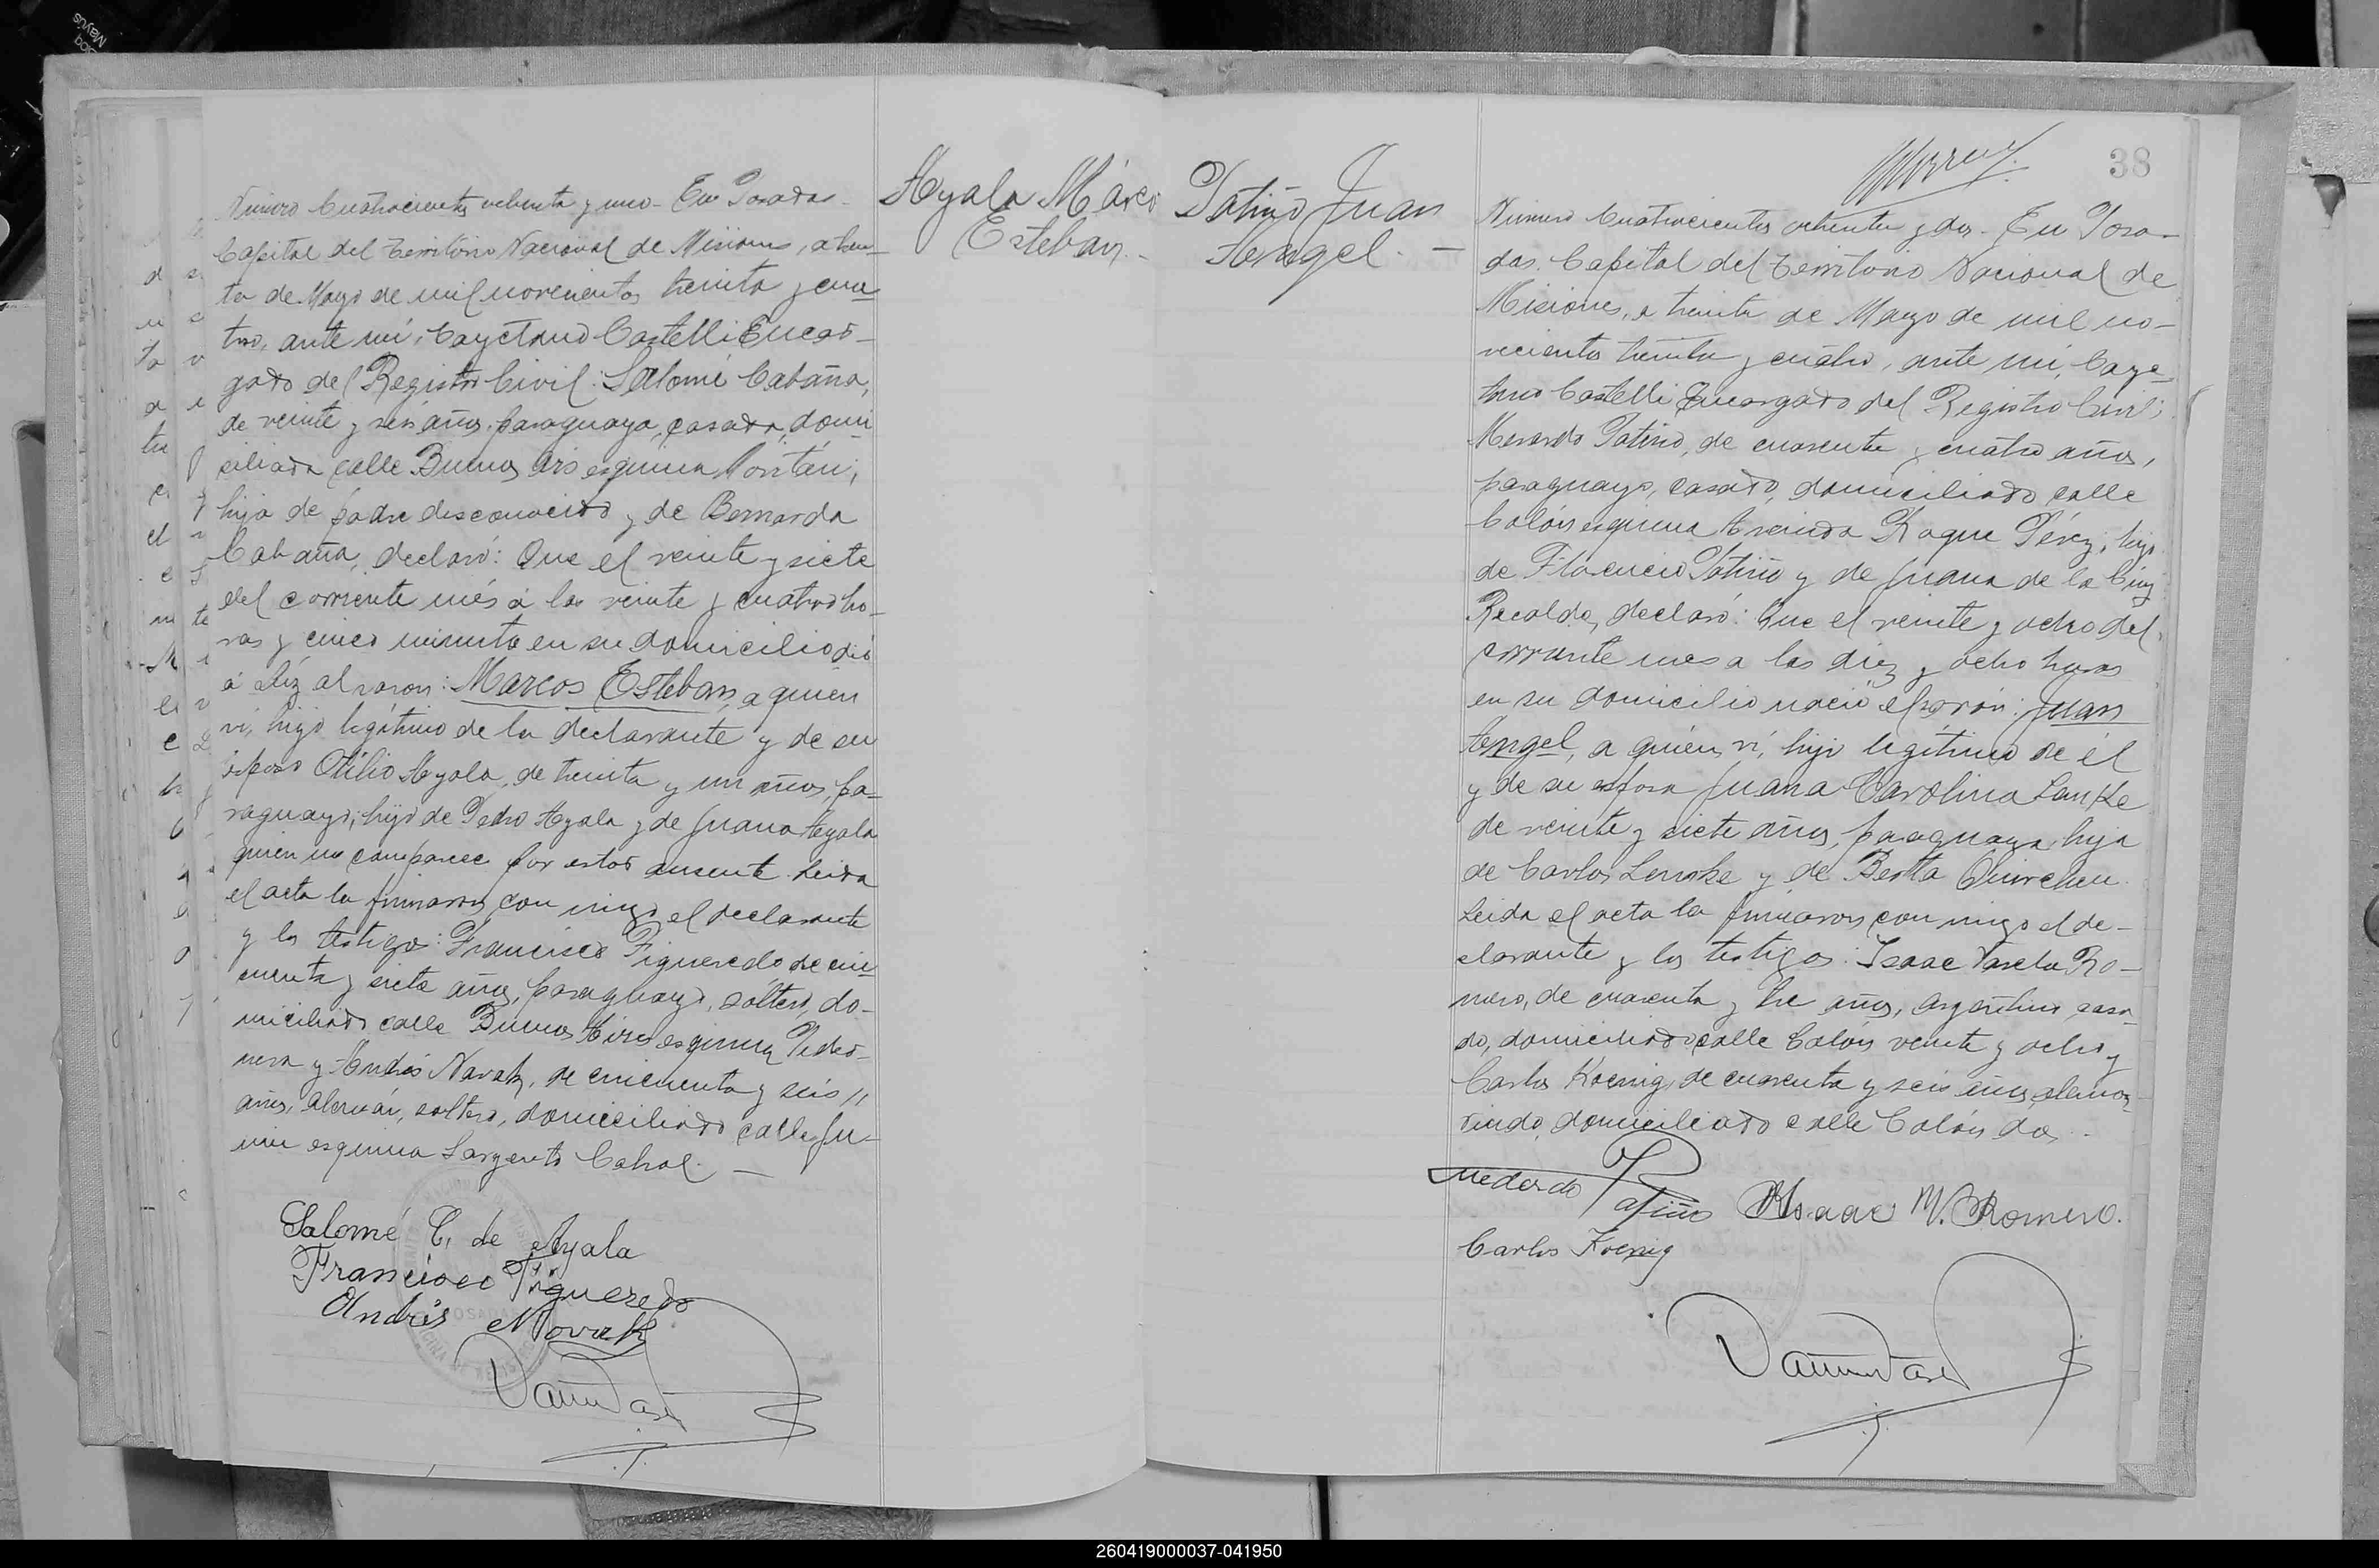 Número Cuatrocientos ochenta y uno - En Posadas
Capital del Territorio Nacional de Misiones, a trein-
ta de Mayo de mil novecientos treinta y cua
tro, ante mí, Cayetano Castelli Encar-
gado del Registro Civil: Salomé Cabaña,
de veinte y seis años, paraguaya, casada, domi
ciliada calle Buenos Ais esquina
hija de padre desconocido y de Bernarda
Cabaña, declaró: Que el veinte y siete
del corriente més á las veinte y cuatro ho-
ras y cinco minuto en su domicilio dió
á lúz al varon: Marcos Esteban, a quien
ví, hijo legítimo de la declarante y de su
esposo Otilio Ayala, de treinta y un años, pa-
raguayo, hijo de Pedro Ayala y de Juana Ayala
quien no comparece por estar ausente. Leida
el acta la firmaron con migo el declarante
y los testigos: Francisco Figueredo de cin
cuenta y siete años, paraguayo, soltero, do-
miciliado calle Buenos Aires esquina Pedro-
nera y Andrés Novak, de cincuenta y seis //
años, alemán, soltero, domiciliado calle Ju-
nin esquina Sargento Cabral. —
Salomé C. de Ayala
Francisco Figueredo
Andrés Novak
Ayala Marco
Esteban. -
Patiño Juan
Angel. —
38
Número Cuatrocientos ochenta y dos - En Posa-
das Capital del Territorio Nacional de
Misiones, a treinta de Mayo de mil no-
vecientos treinta y cuatro, ante mí, Caye-
tano Castelli Encargado del Registro Civil:
Merardo Patiño, de cuarenta y cuatro años,
paraguayo, casado, domiciliado calle
Colón esquina Avenida Roque Pérez, hijo
de Florencio Patiño y de Juana de la Cruz
Recalde, declaró: Que el veinte y ocho del
corriente mes a las diez y ocho horas
en su domicilio nació el varón: Juan
Angel, a quien ví, hijo legítimo de él
y de su esposa Juana Carolina Lemke
de veinte y siete años, paraguaya, hija
de Carlos Lemke y de Berta
Leida el acta la firmaron con migo el de-
clarante y los testigos: Isaac Varela Ro-
mero, de cuarenta y tre años, argentino, casa-
do, domiciliado calle Colón veinte y ocho y
Carlos Koenig, de cuarenta y seis años, aleman,
viudo, domiciliado calle Colón dos. -
Medardo Patiño Isaac V. Romero.
Carlos Koenig
260419000037-041950